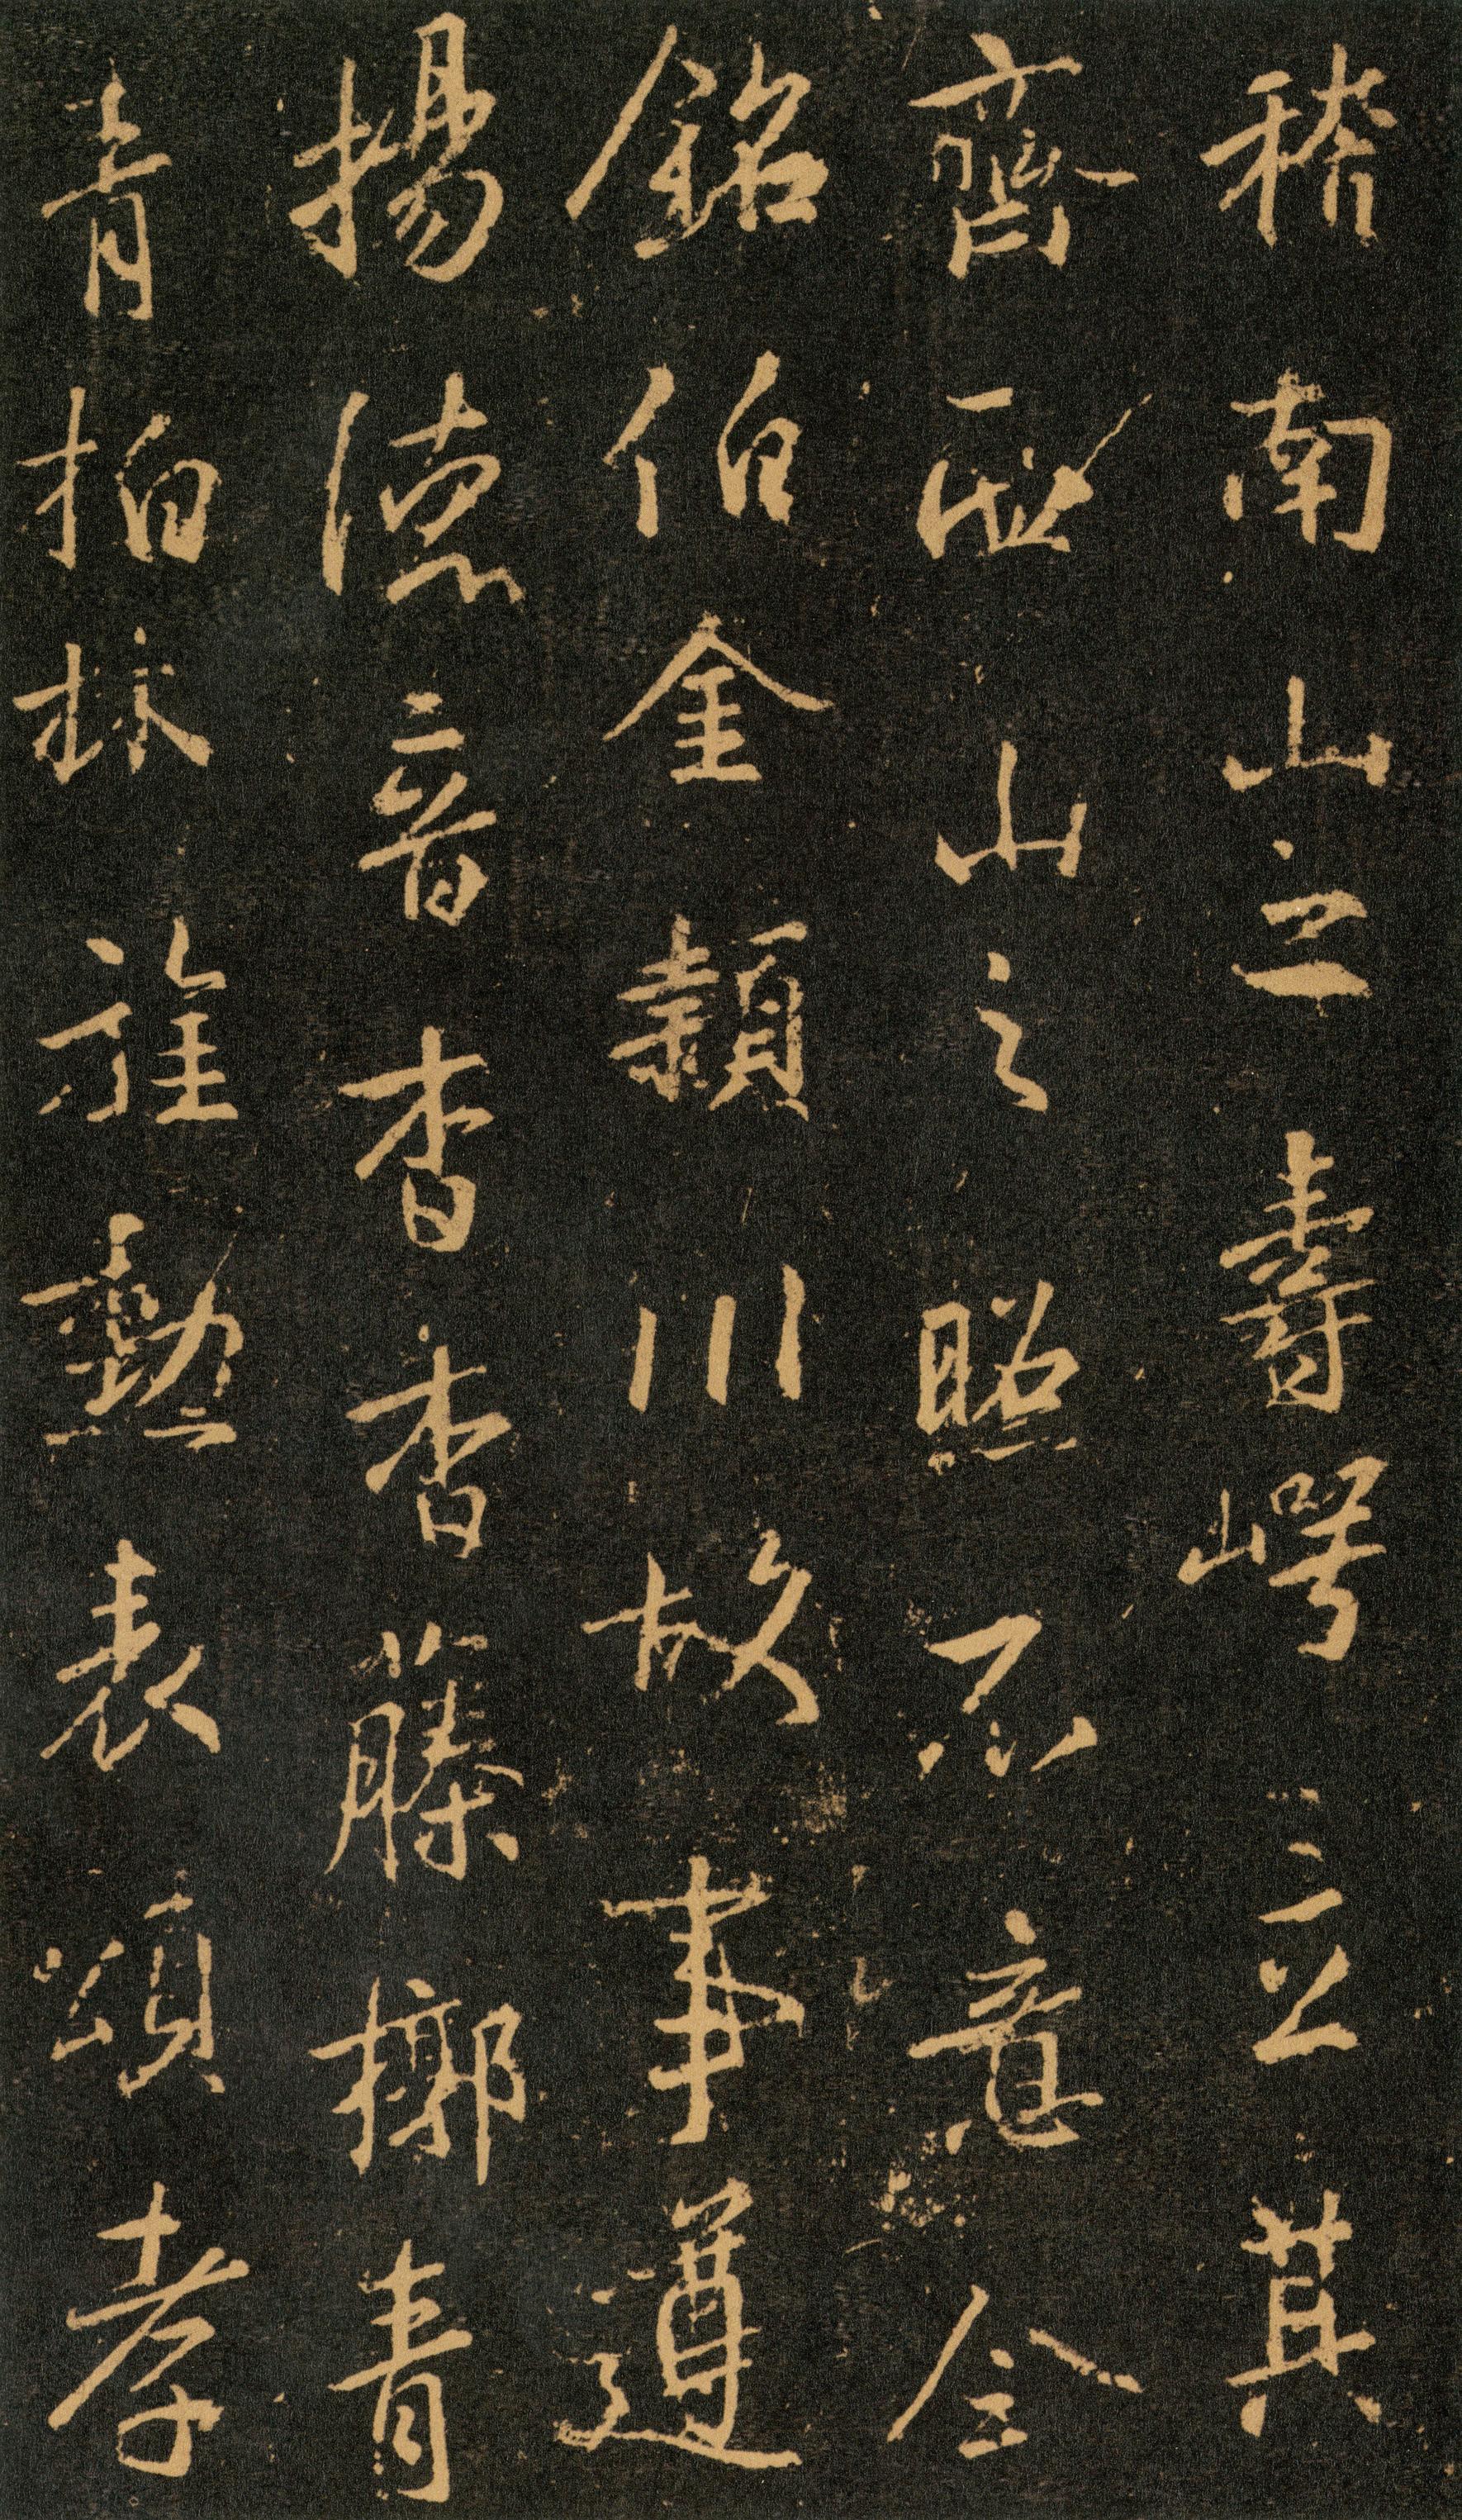 稽南山之壽崿立其
齊山之照不意今
銘伯金穎川故事遵
揚德音杳杳藤槨青
青柏林旌勳表頌孝